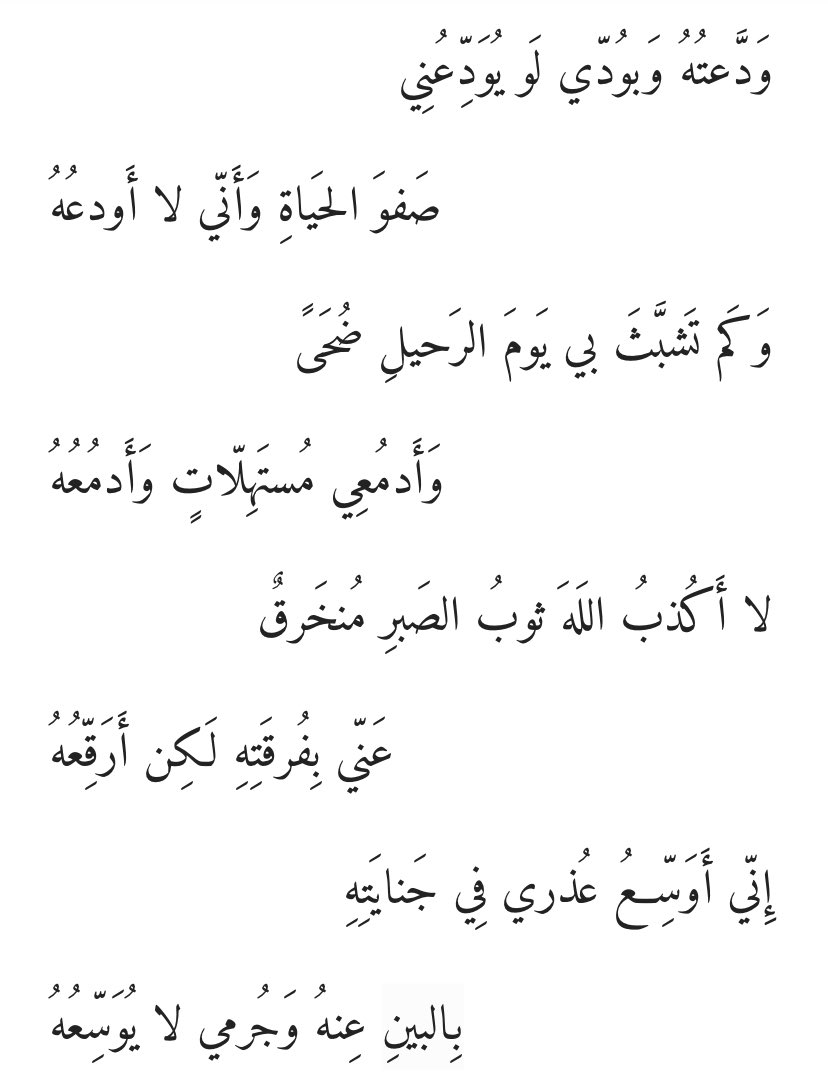 وَدَّعتُهُ وَبوُدّي لَو يُوَدِّعُنِي
صَفوَ الحَياةِ وَأَنّي لا أَودعُهُ
وَكَم تَشبَّثَ بي يَومَ الرَحيلِ ضُحَىً
وَأَدمُعِي مُستَهِلّاتٍ وَأَدمُعُهُ
لا أَكُذبُ اللَهَ ثوبُ الصَبرِ مُنخَرقٌ
عَنّي بِفُرقَتِهِ لَكِن أَرَقِّعُهُ
إِنّي أَوَسِّعُ عُذري فِي جَنايَتِهِ
بِالبينِ عِنهُ وَجُرمي لا يُوَسِّعُهُ